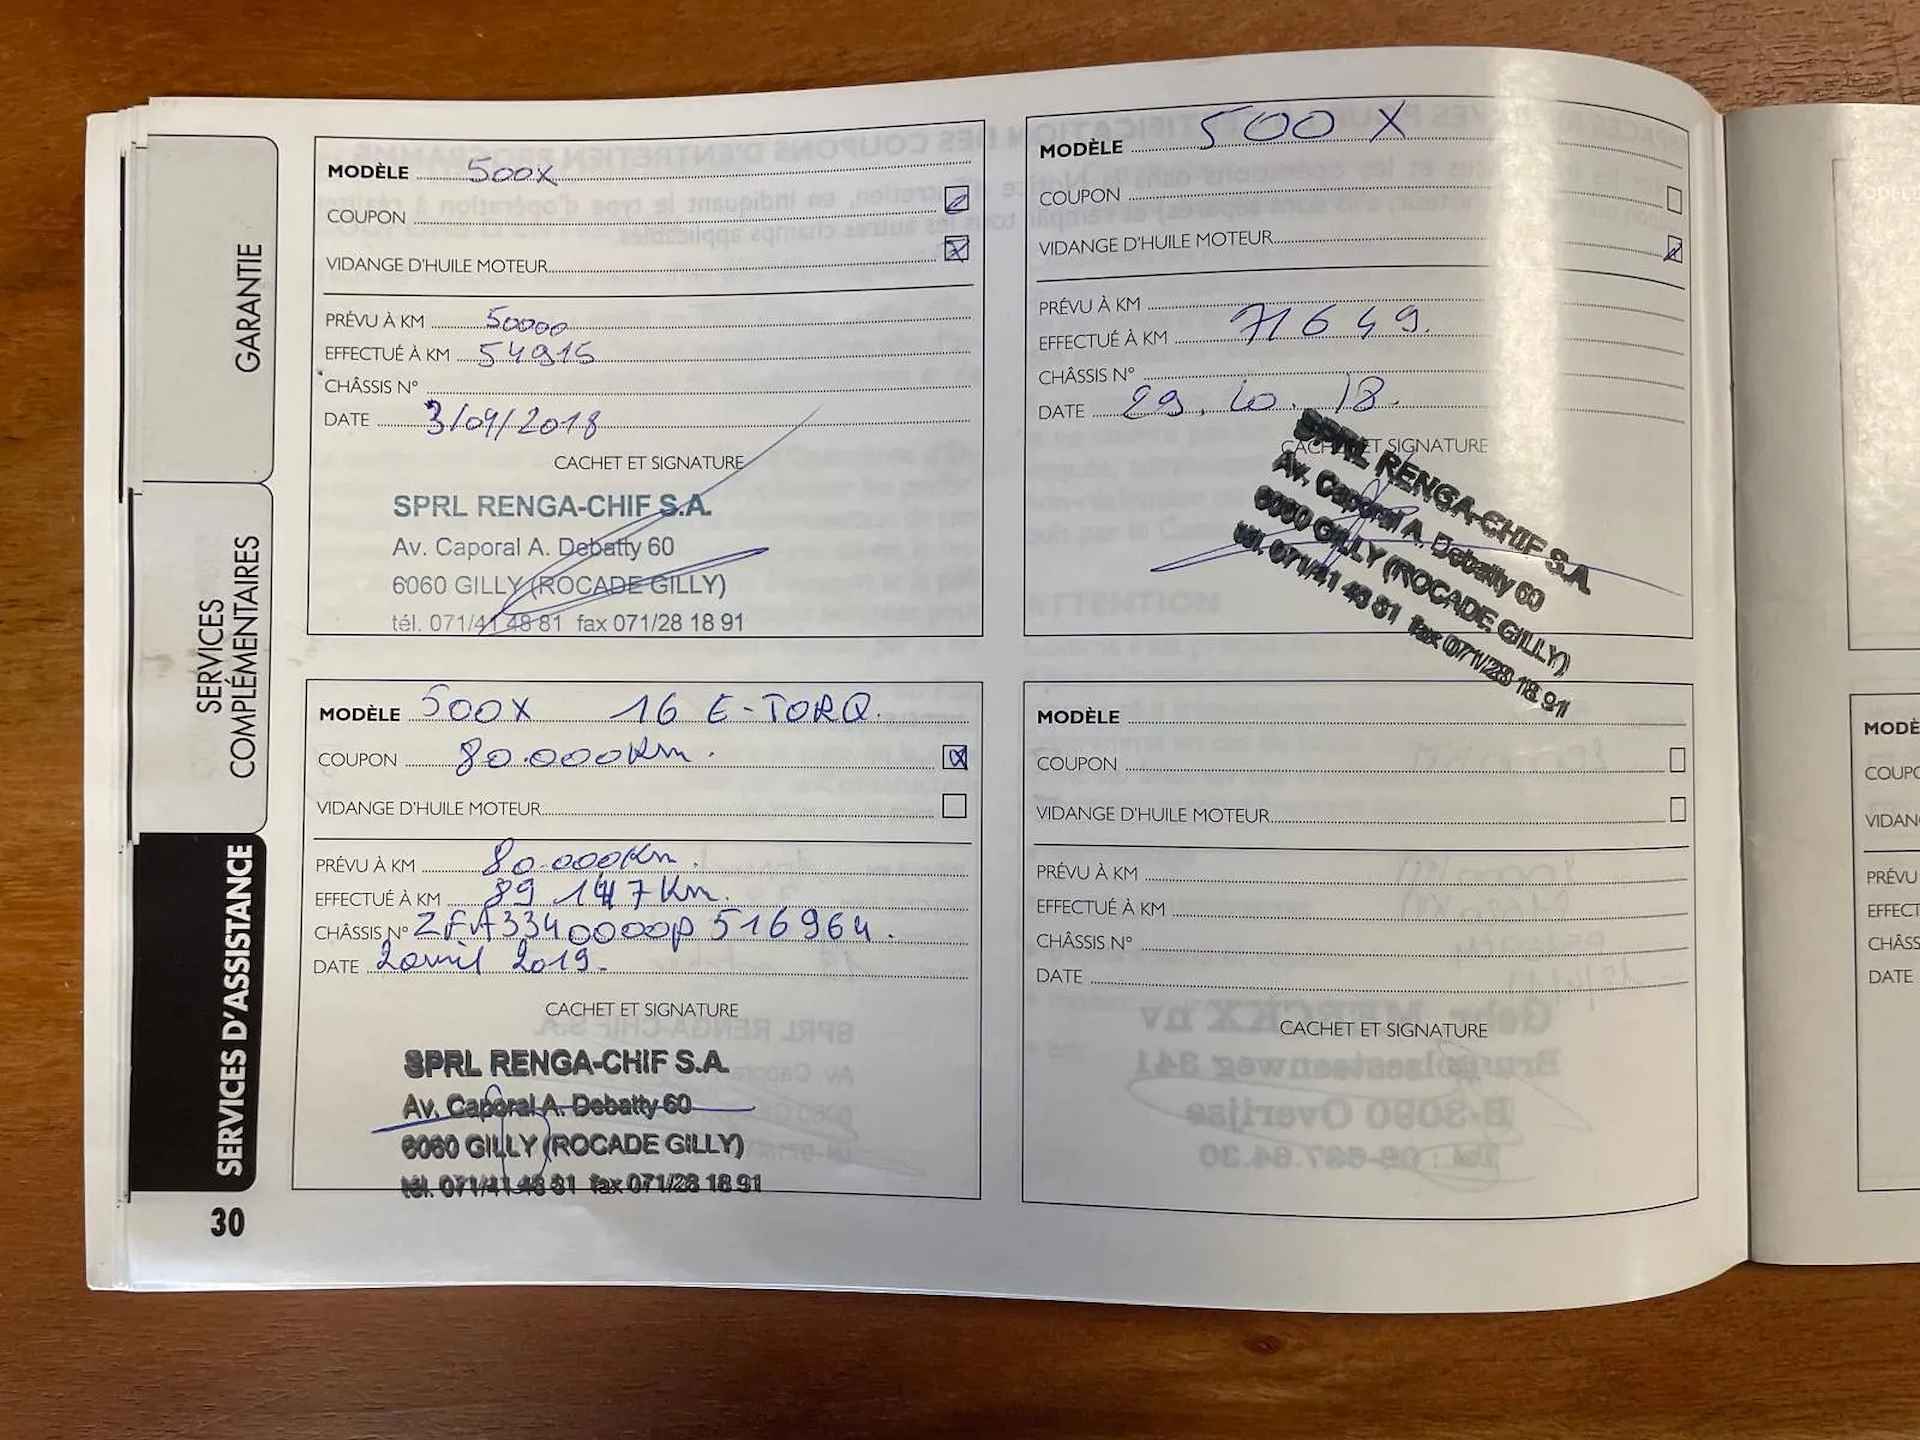 GARANTIE
SERVICES
COMPLÉMENTAIRES
SERVICES D'ASSISTANCE
30
MODÈLE 500X
COUPON
VIDANGE D'HUILE MOTEUR
PRÉVU À KM 50000
EFFECTUÉ À KM 54915
CHÂSSIS N°
DATE 3/04/2018
CACHET ET SIGNATURE
SPRL RENGA-CHIF S.A.
Av. Caporal A. Debatty 60
6060 GILLY (ROCADE GILLY)
tél. 071/41 48 81 fax 071/28 18 91
MODÈLE 500 X
COUPON
VIDANGE D'HUILE MOTEUR
PRÉVU À KM
EFFECTUÉ À KM 71649.
CHÂSSIS N°
DATE 29.10.18.
CACHET ET SIGNATURE
SPRL RENGA-CHIF S.A.
Av. Caporal A. Debatty 60
6060 GILLY (ROCADE GILLY)
tél. 071/41 48 81 fax 071/28 18 91
MODÈLE 500X 16 E-TORQ.
COUPON 80.000Km.
VIDANGE D'HUILE MOTEUR
PRÉVU À KM 80.000Km.
EFFECTUÉ À KM 89 147 Km.
CHÂSSIS N° ZFA3340000P516964.
DATE 2 avril 2019.
CACHET ET SIGNATURE
SPRL RENGA-CHIF S.A.
Av. Caporal A. Debatty 60
6060 GILLY (ROCADE GILLY)
tél. 071/41 48 81 fax 071/28 18 91
MODÈLE
COUPON
VIDANGE D'HUILE MOTEUR
PRÉVU À KM
EFFECTUÉ À KM
CHÂSSIS N°
DATE
CACHET ET SIGNATURE
MODÈ
COUPO
VIDAN
PRÉVU
EFFECT
CHÂSS
DATE